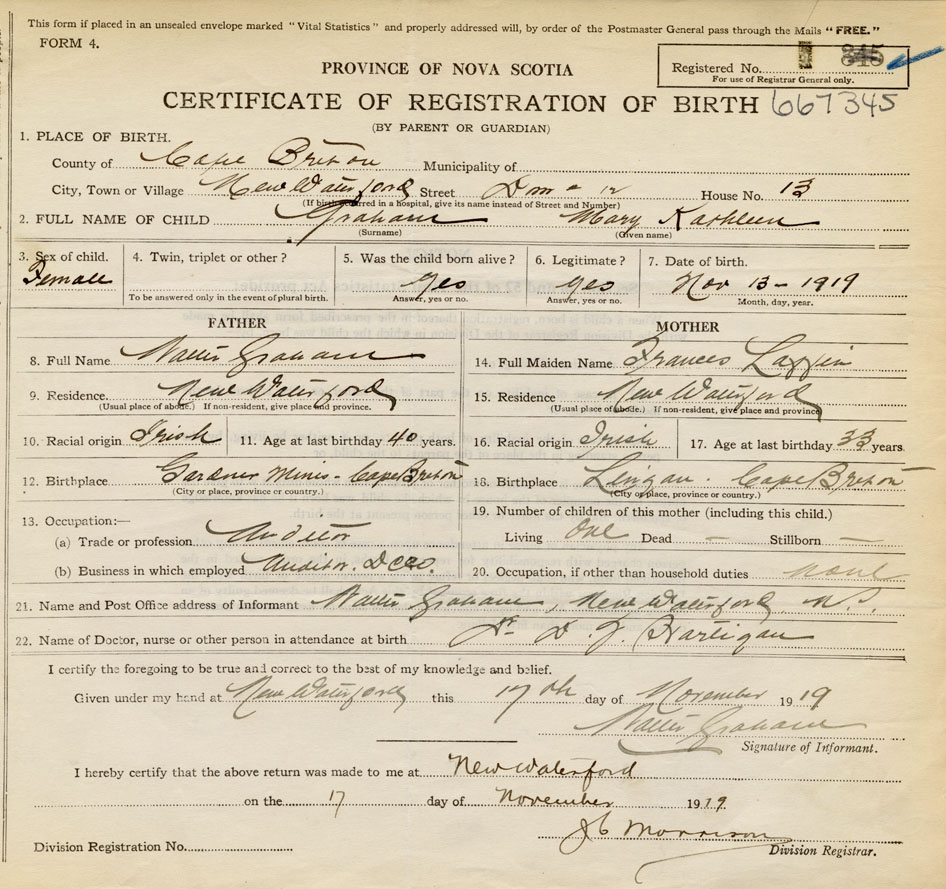 This form if placed in an unsealed envelope marked "Vital Statistics" and properly addressed will, by order of the Postmaster General pass through the Mails "FREE."
FORM 4.
Registered No. 345
For use of Registrar General only.
PROVINCE OF NOVA SCOTIA
CERTIFICATE OF REGISTRATION OF BIRTH 667345
(BY PARENT OR GUARDIAN)
1. PLACE OF BIRTH.
County of Cape Breton Municipality of
City, Town or Village New Waterford Street Dom 12 House No. 13
(If birth occurred in a hospital, give its name instead of Street and Number)
2. FULL NAME OF CHILD Graham Mary Kathleen
(Surname) (Given name)
3. Sex of child. 4. Twin, triplet or other? 5. Was the child born alive? 6. Legitimate? 7. Date of birth.
Female yes yes Nov 13 - 1919
To be answered only in the event of plural birth. Answer, yes or no. Answer, yes or no. Month, day, year.
FATHER MOTHER
8. Full Name Walter Graham 14. Full Maiden Name Frances
9. Residence. New Waterford 15. Residence New Waterford
(Usual place of abode.) If non-resident, give place and province. (Usual place of abode.) If non-resident, give place and province
10. Racial origin Irish 11. Age at last birthday 40 years. 16. Racial origin Irish 17. Age at last birthday 33 years.
12. Birthplace Gardner Mines - Cape Breton 18. Birthplace Lingan - Cape Breton
(City or place, province or country.) (City or place, province or country.)
13. Occupation:— 19. Number of children of this mother (including this child.)
(a) Trade or profession Auditor Living One Dead — Stillborn —
(b) Business in which employed Auditor. 20. Occupation, if other than household duties none
21. Name and Post Office address of Informant Walter Graham, New Waterford N.S.
22. Name of Doctor, nurse or other person in attendance at birth Dr. D. J. Hartigan
I certify the foregoing to be true and correct to the best of my knowledge and belief.
Given under my hand at New Waterford this 17th day of November 1919
Walter Graham
Signature of Informant.
I hereby certify that the above return was made to me at New Waterford
on the 17 day of November 1919
J C Morrison
Division Registration No. Division Registrar.